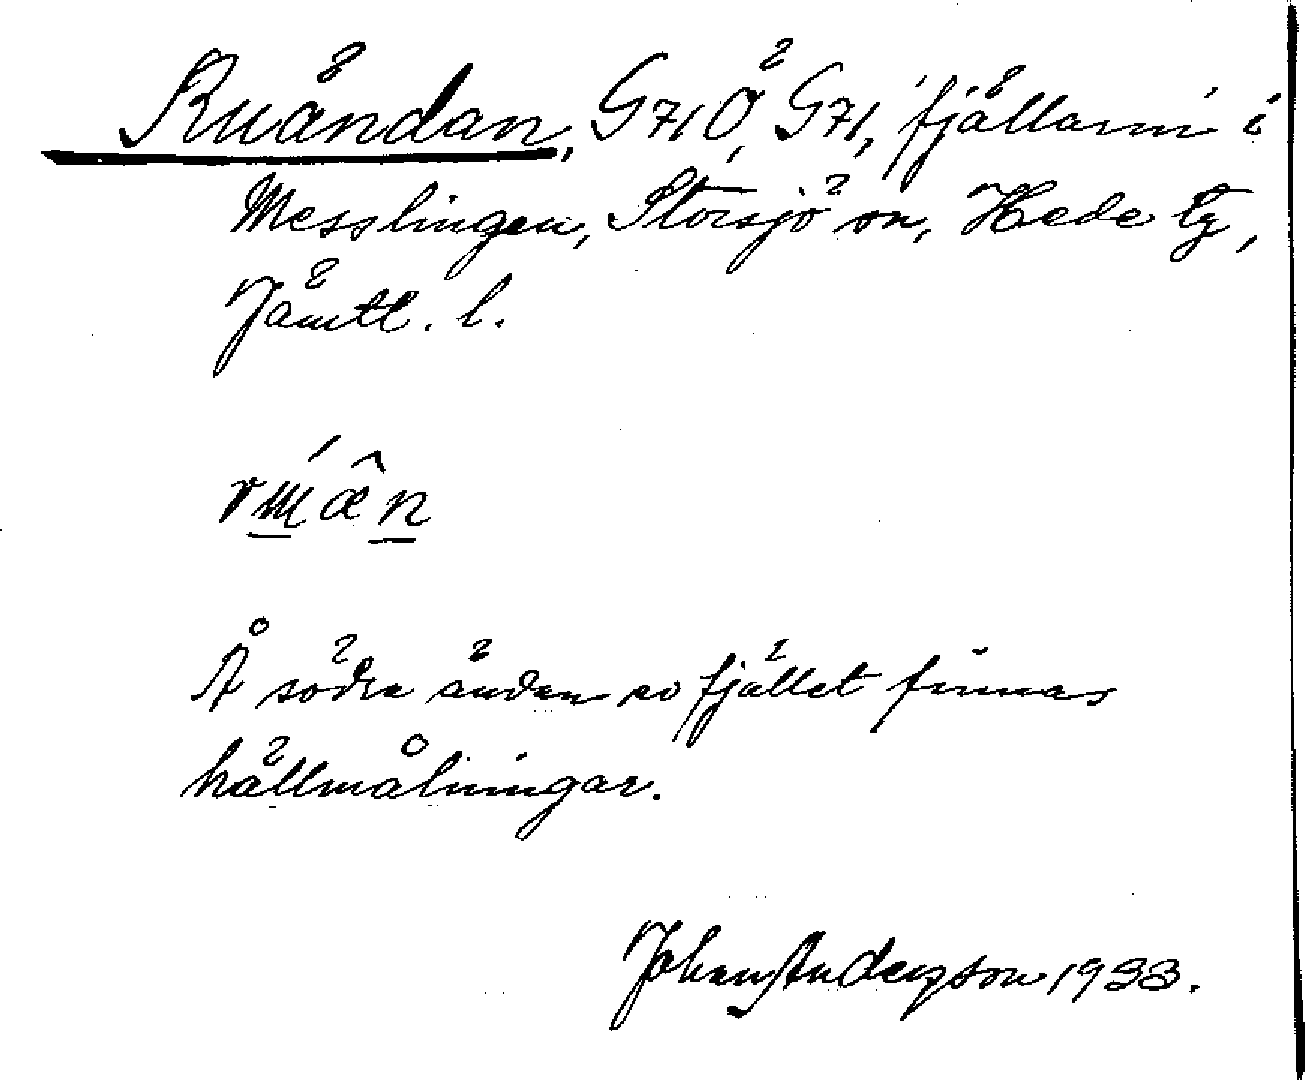 Ruändan, G71Ö, G71, fjällarm i
Messlingen, Storsjö sn, Hede tg,
Jämtl. l.
Å södra ändan av fjället finnas
hällmålningar.
Johan Andersson 1933.